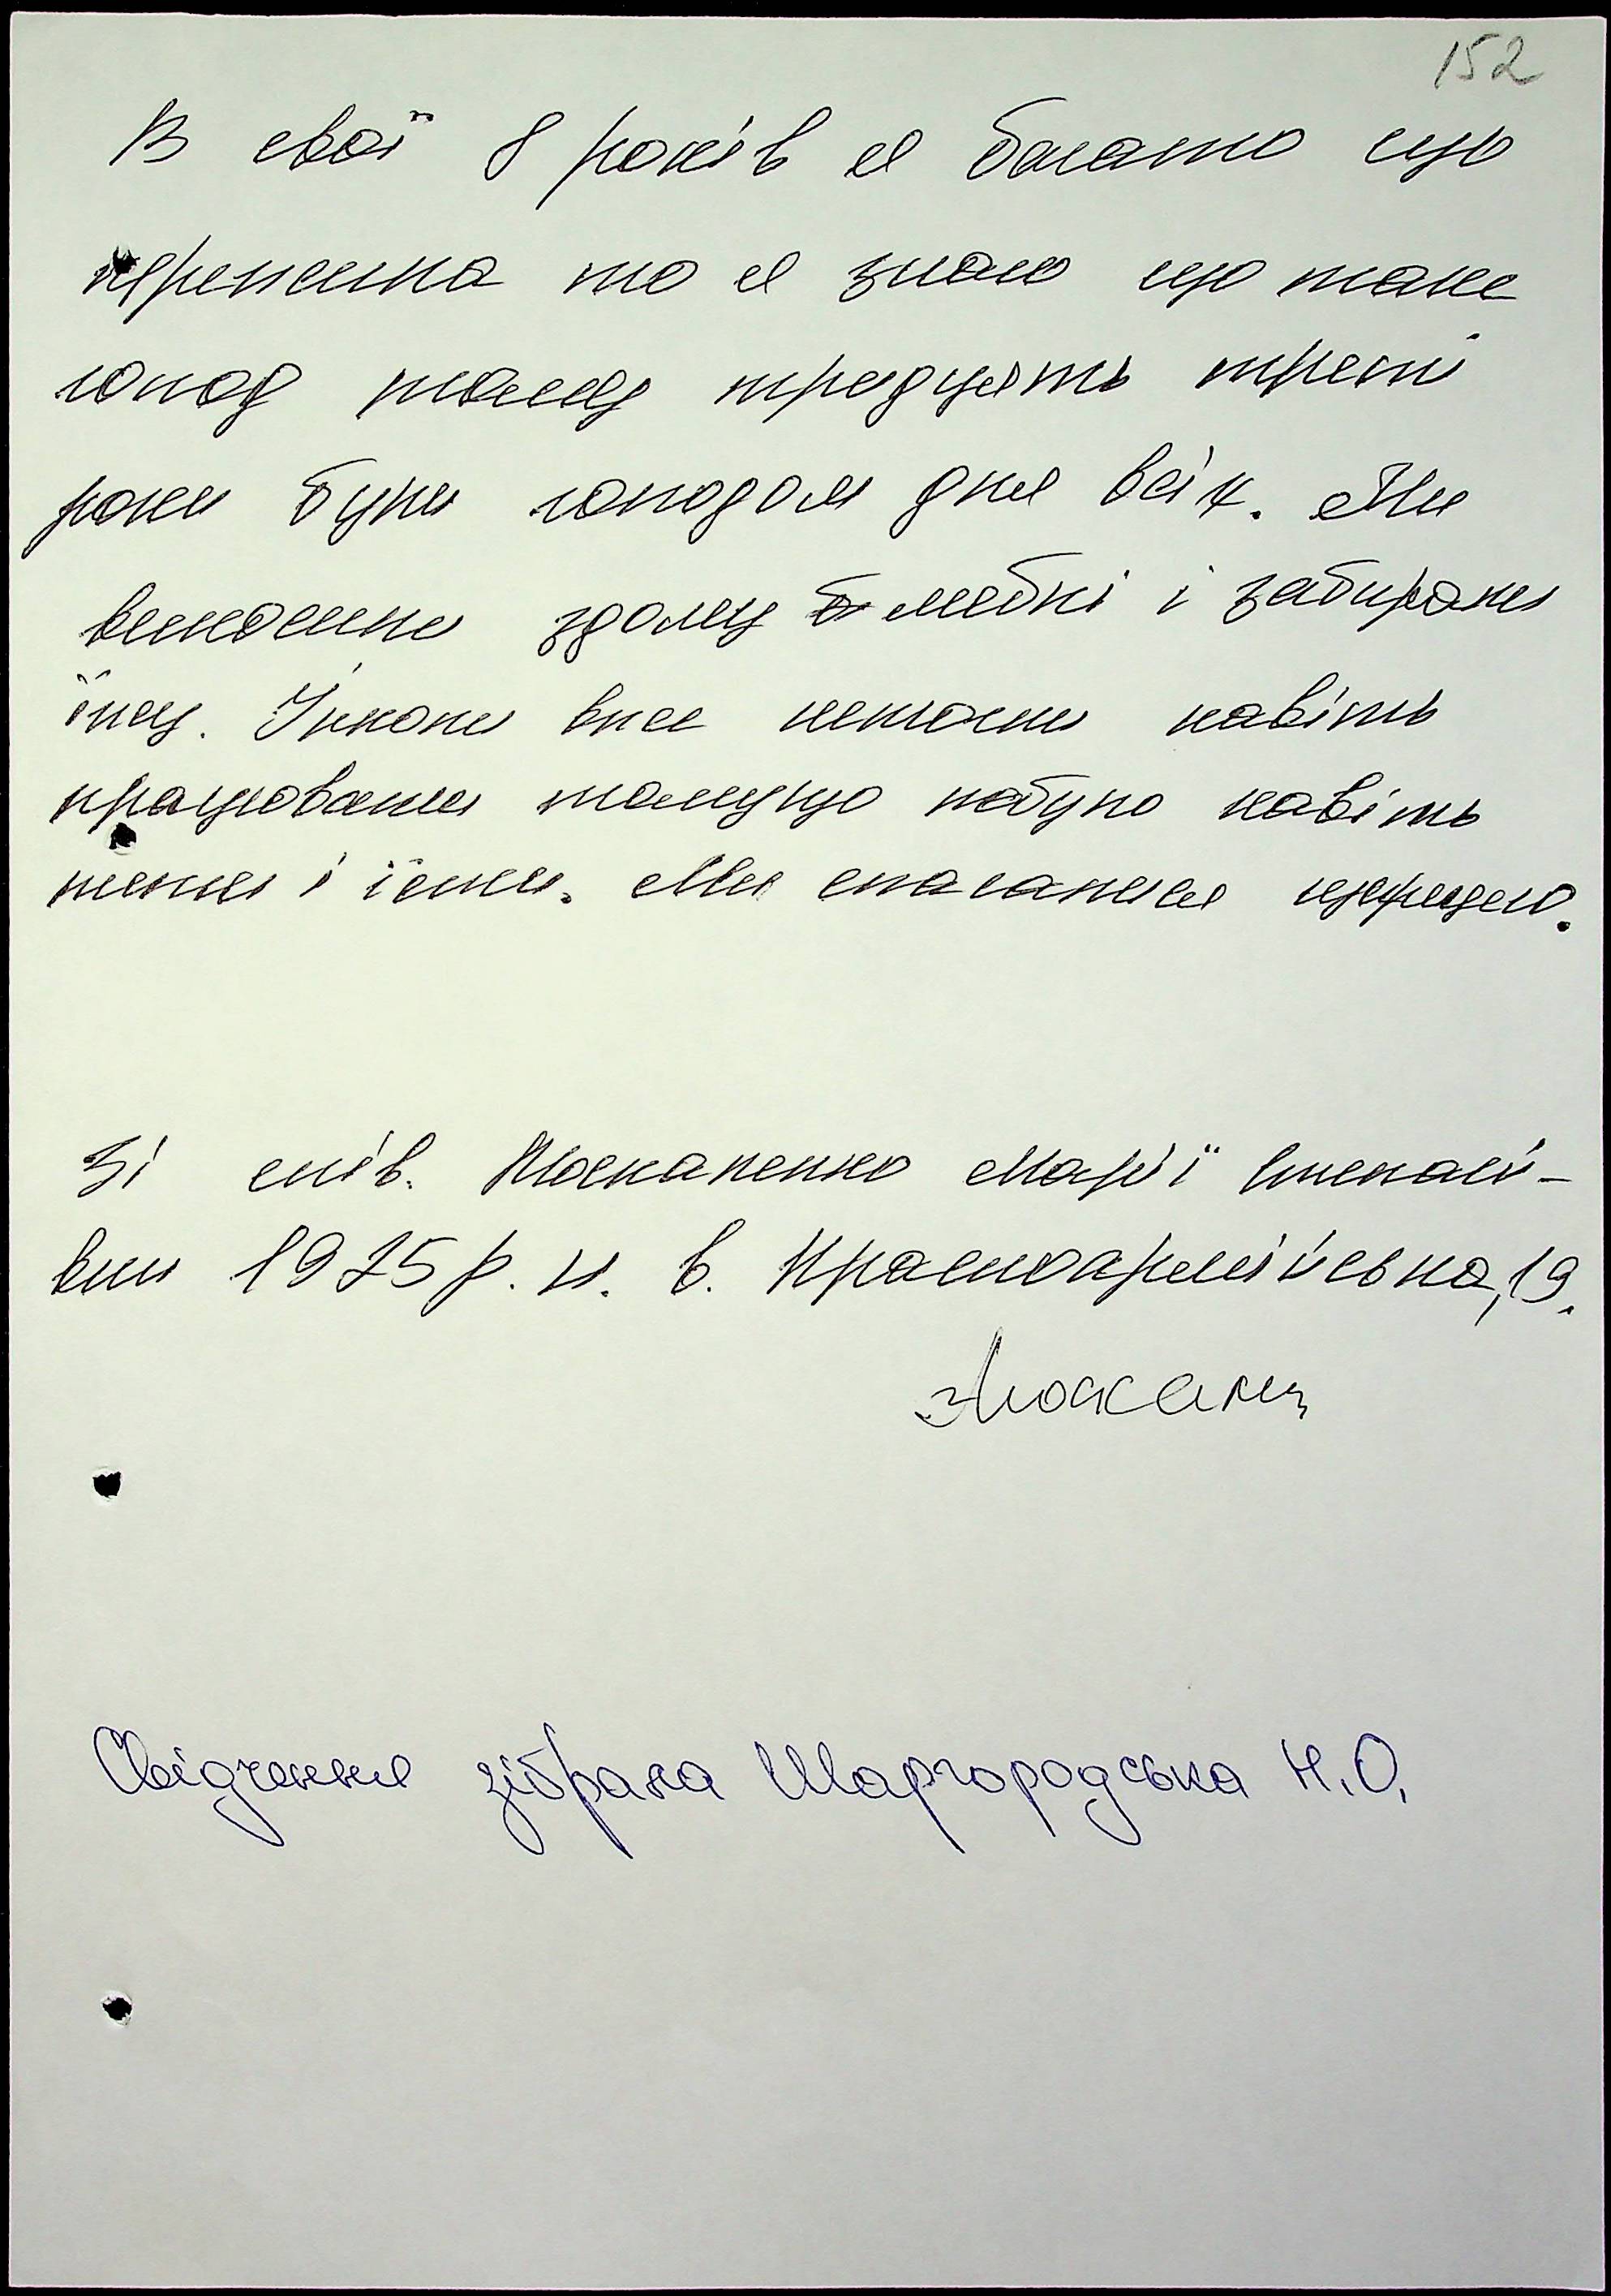 152
В свої 8 років я багато що
пережила то я знаю що таке
голод тому тридцять треті
роки були голодом для всіх. Ми
виносили здому меблі і забирали
їжу. Інколи вже немогли навіть
працювати томущо небуло навіть
пити і їсти.  Ми спасалися цукридою.
Зі слів. Москаленко Марії Степанів-
вни 1925 р. н. в. Красноармійська, 19.
Москал
Свідчення зібрала Шаргородська Н.О.